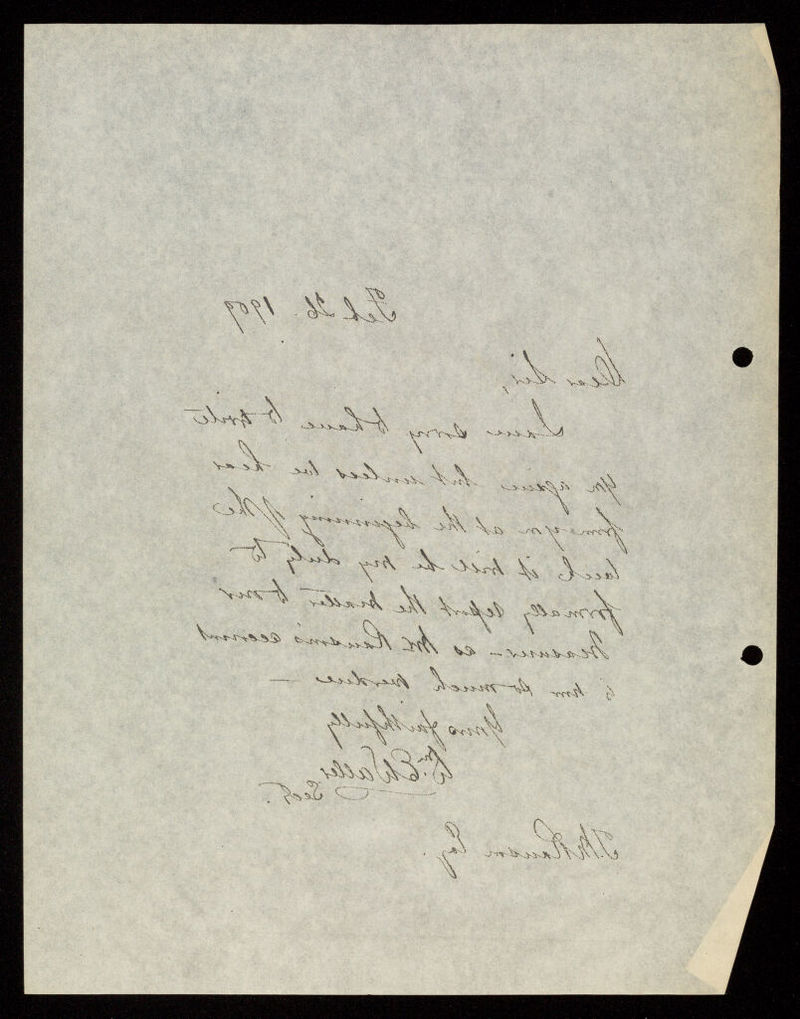 Feb 26. 1909
Dear Sir,
I am sorry to have to write
you again but unless we hear
from you at the beginning of the
week it will be my duty to
formally report the matter to our
Treasurer – as Mr Ransom's account
is now so much overdue –
Yours faithfully
Wm. E Waller
Secy.
Ransom Esq.